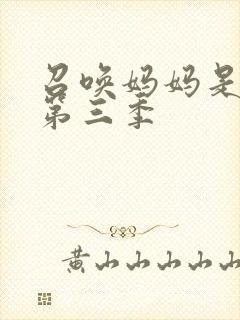 召唤妈妈是
第三季
黄山山山山